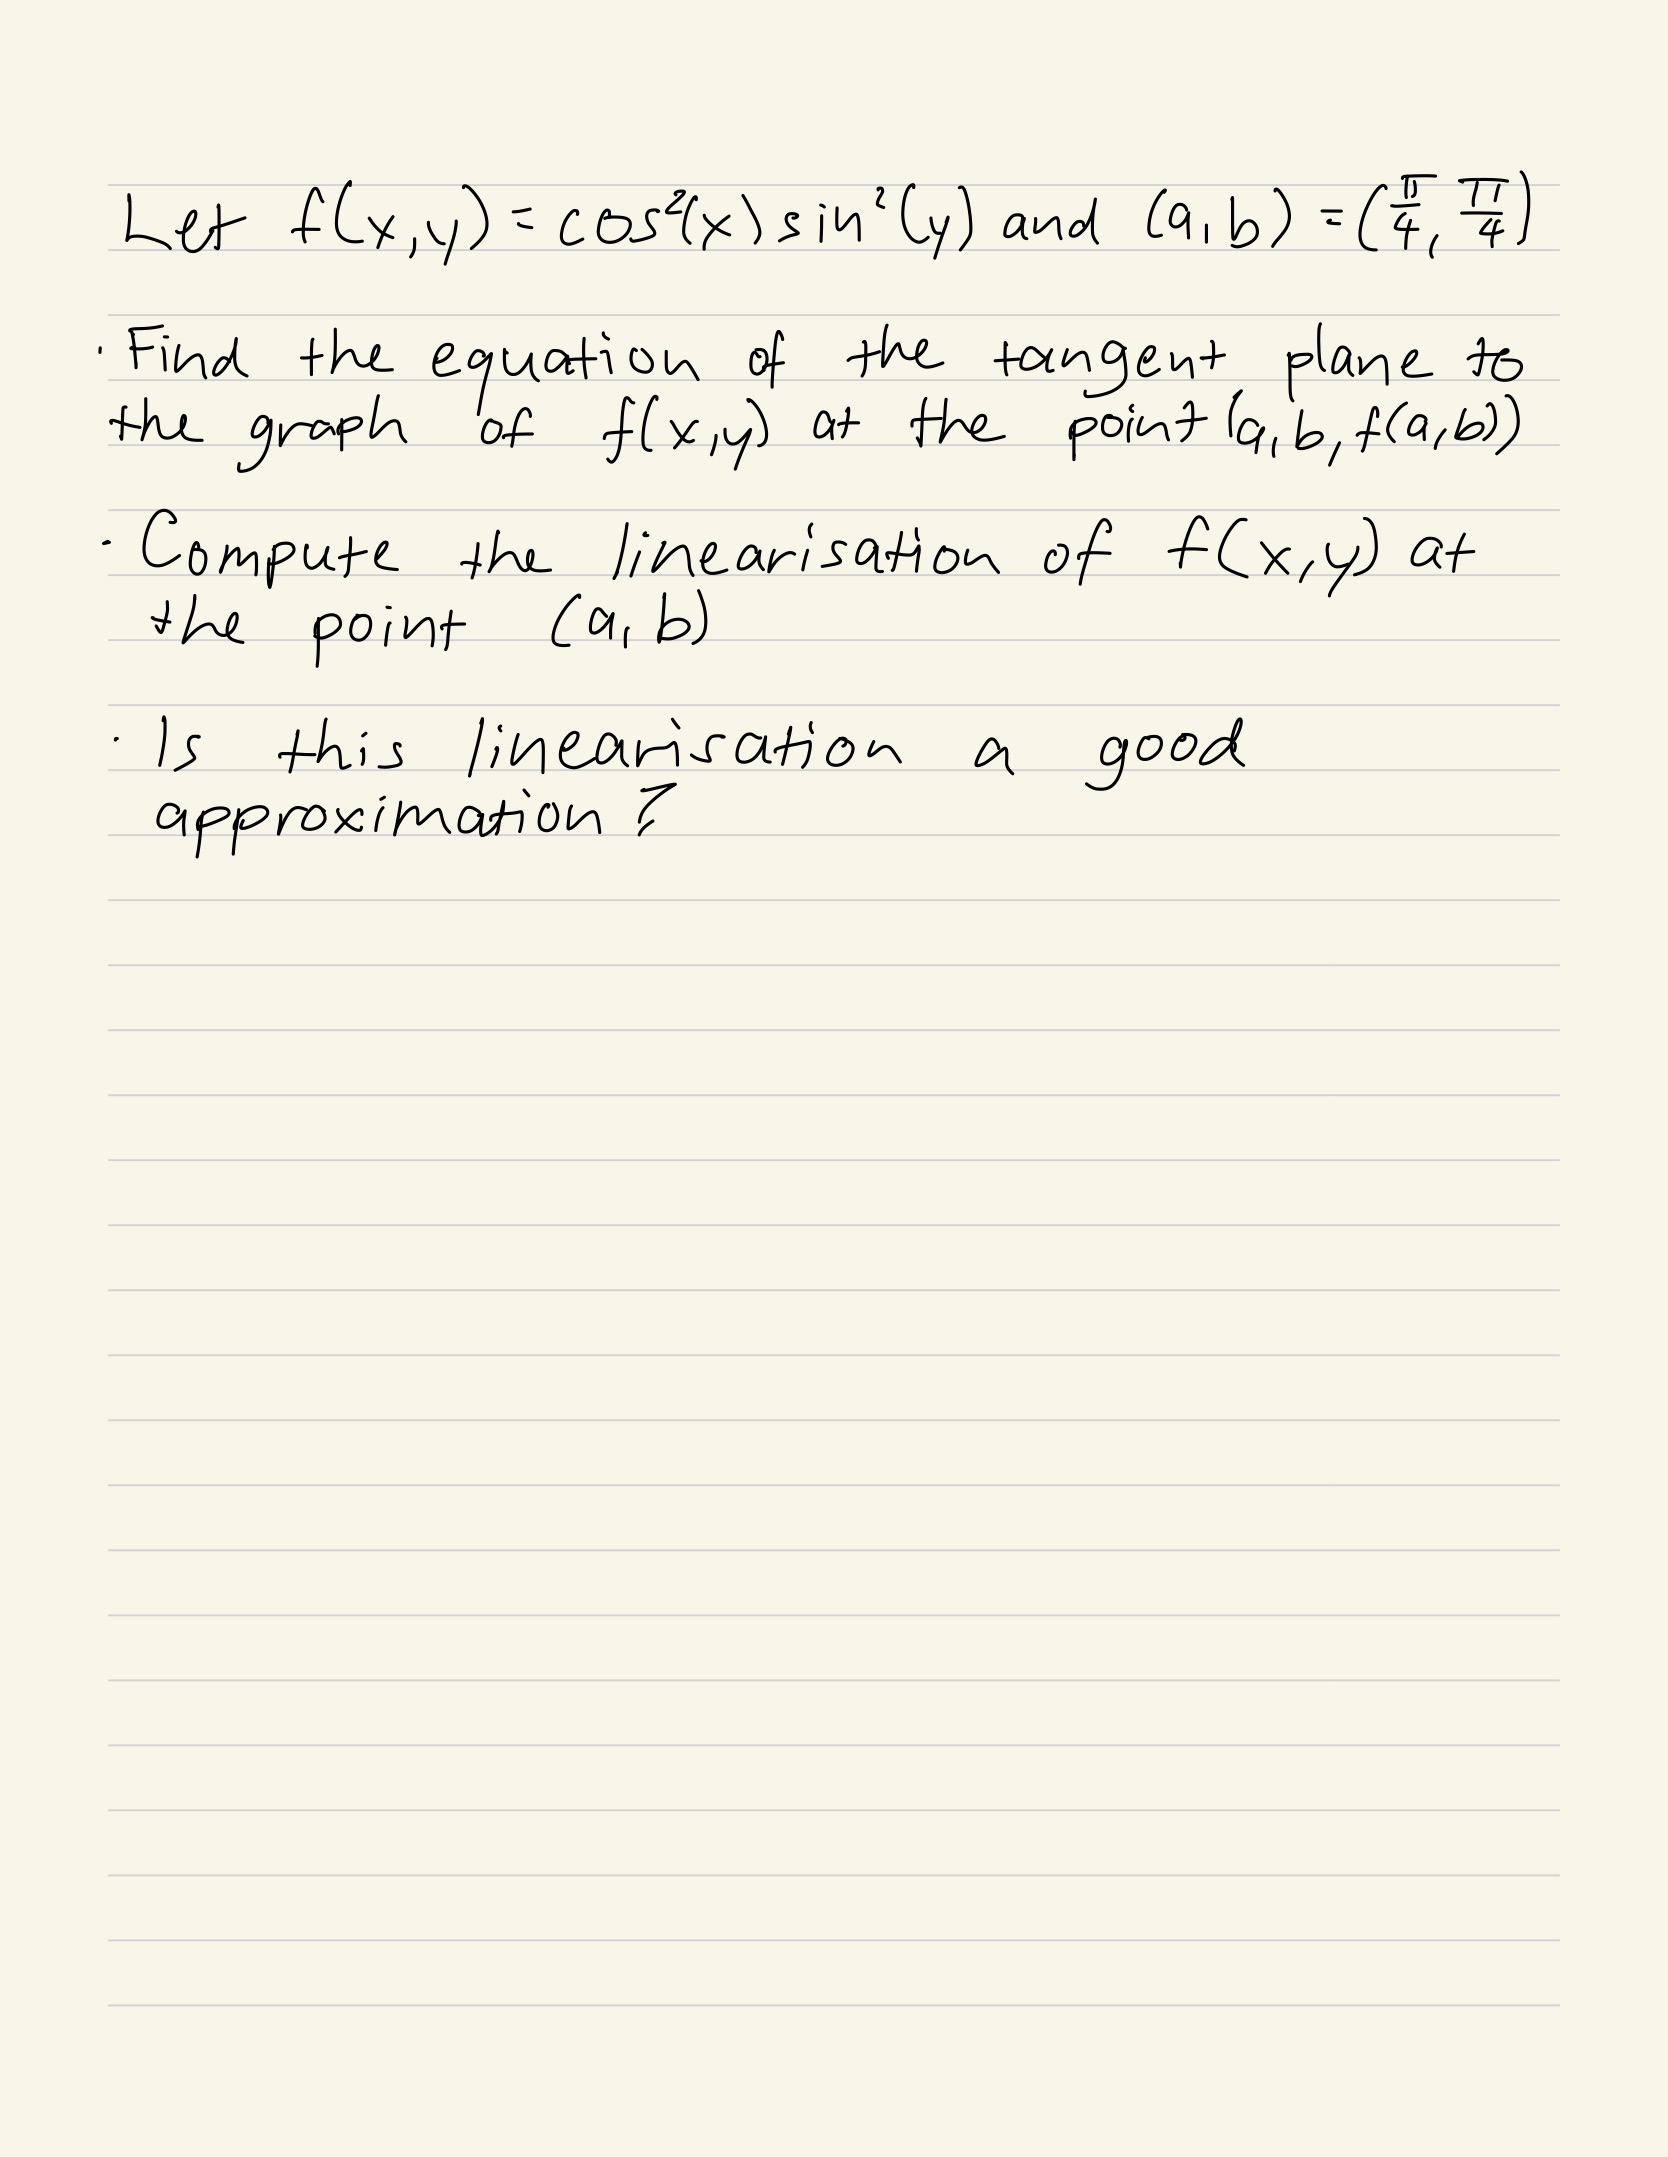 Let f(x,y) = cos²(x) sin²(y) and (a,b) = (π/4, π/4)
· Find the equation of the tangent plane to
the graph of f(x,y) at the point (a,b,f(a,b))
· Compute the linearisation of f(x,y) at
the point (a,b)
· Is this linearisation a good
approximation?